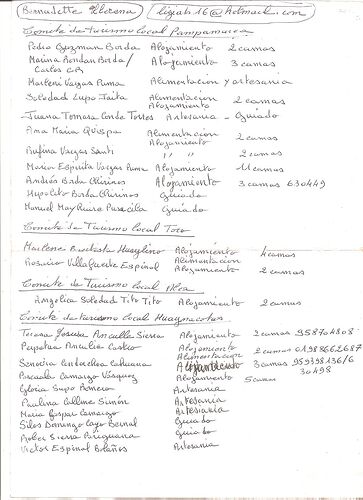 Bernadette Llerena / ligiab16@hotmail.com
Comite de Turismo Local Pampamarca
Pedro Guzman Borda Alojamiento 2 camas
Marina Rondan Borda / Alojamiento 3 camas
Carlos
Marleni Vargas Puma Alimentacion y artesania
Soledad Lupo Taita Alimentacion 2 camas
Alojamiento
Juana Tomasa Conde Torres Artesania - Guiado
Ana Maria Quispe Alimentacion 2 camas
Alojamiento
Rufina Vargas Santi " " 2 camas
Maria Espirita Vargas Puma Alojamiento 11 camas
Andrés Borda Chirinos Alojamiento 3 camas 630449
Hypolito Borda Chirinos Guiado
Manuel Guiado
Comite de Turismo Local Toro
Marlene Bautista Huayllino Alojamiento 4 camas
Rosario Villafuerte Espinol Alimentacion
Alojamiento 2 camas
Comite de Turismo Local
Angelica Soledad Tito Tito Alojamiento 2 camas
Comite de turismo Local Huaynacotas
Teresa Josusa Anculle Sierra Alojamiento 2 camas 958704808
Perpetua Anculle Castro Alojamiento 2 camas 01988662687
Alimentacion
Senovia Cahuana Alojamiento 3 camas 959398136/6
30498
Pascuala Camargo Vasquez Alojamiento 5 camas
Gloria Supo Romero Artesania
Paulina Ccllme Simón Artesania
Maria Gaspar Camargo Artesania
Silos Domingo Cayo Bernal Guiado
Sierra Guiado
Victor Espinol Bolaños Artesania